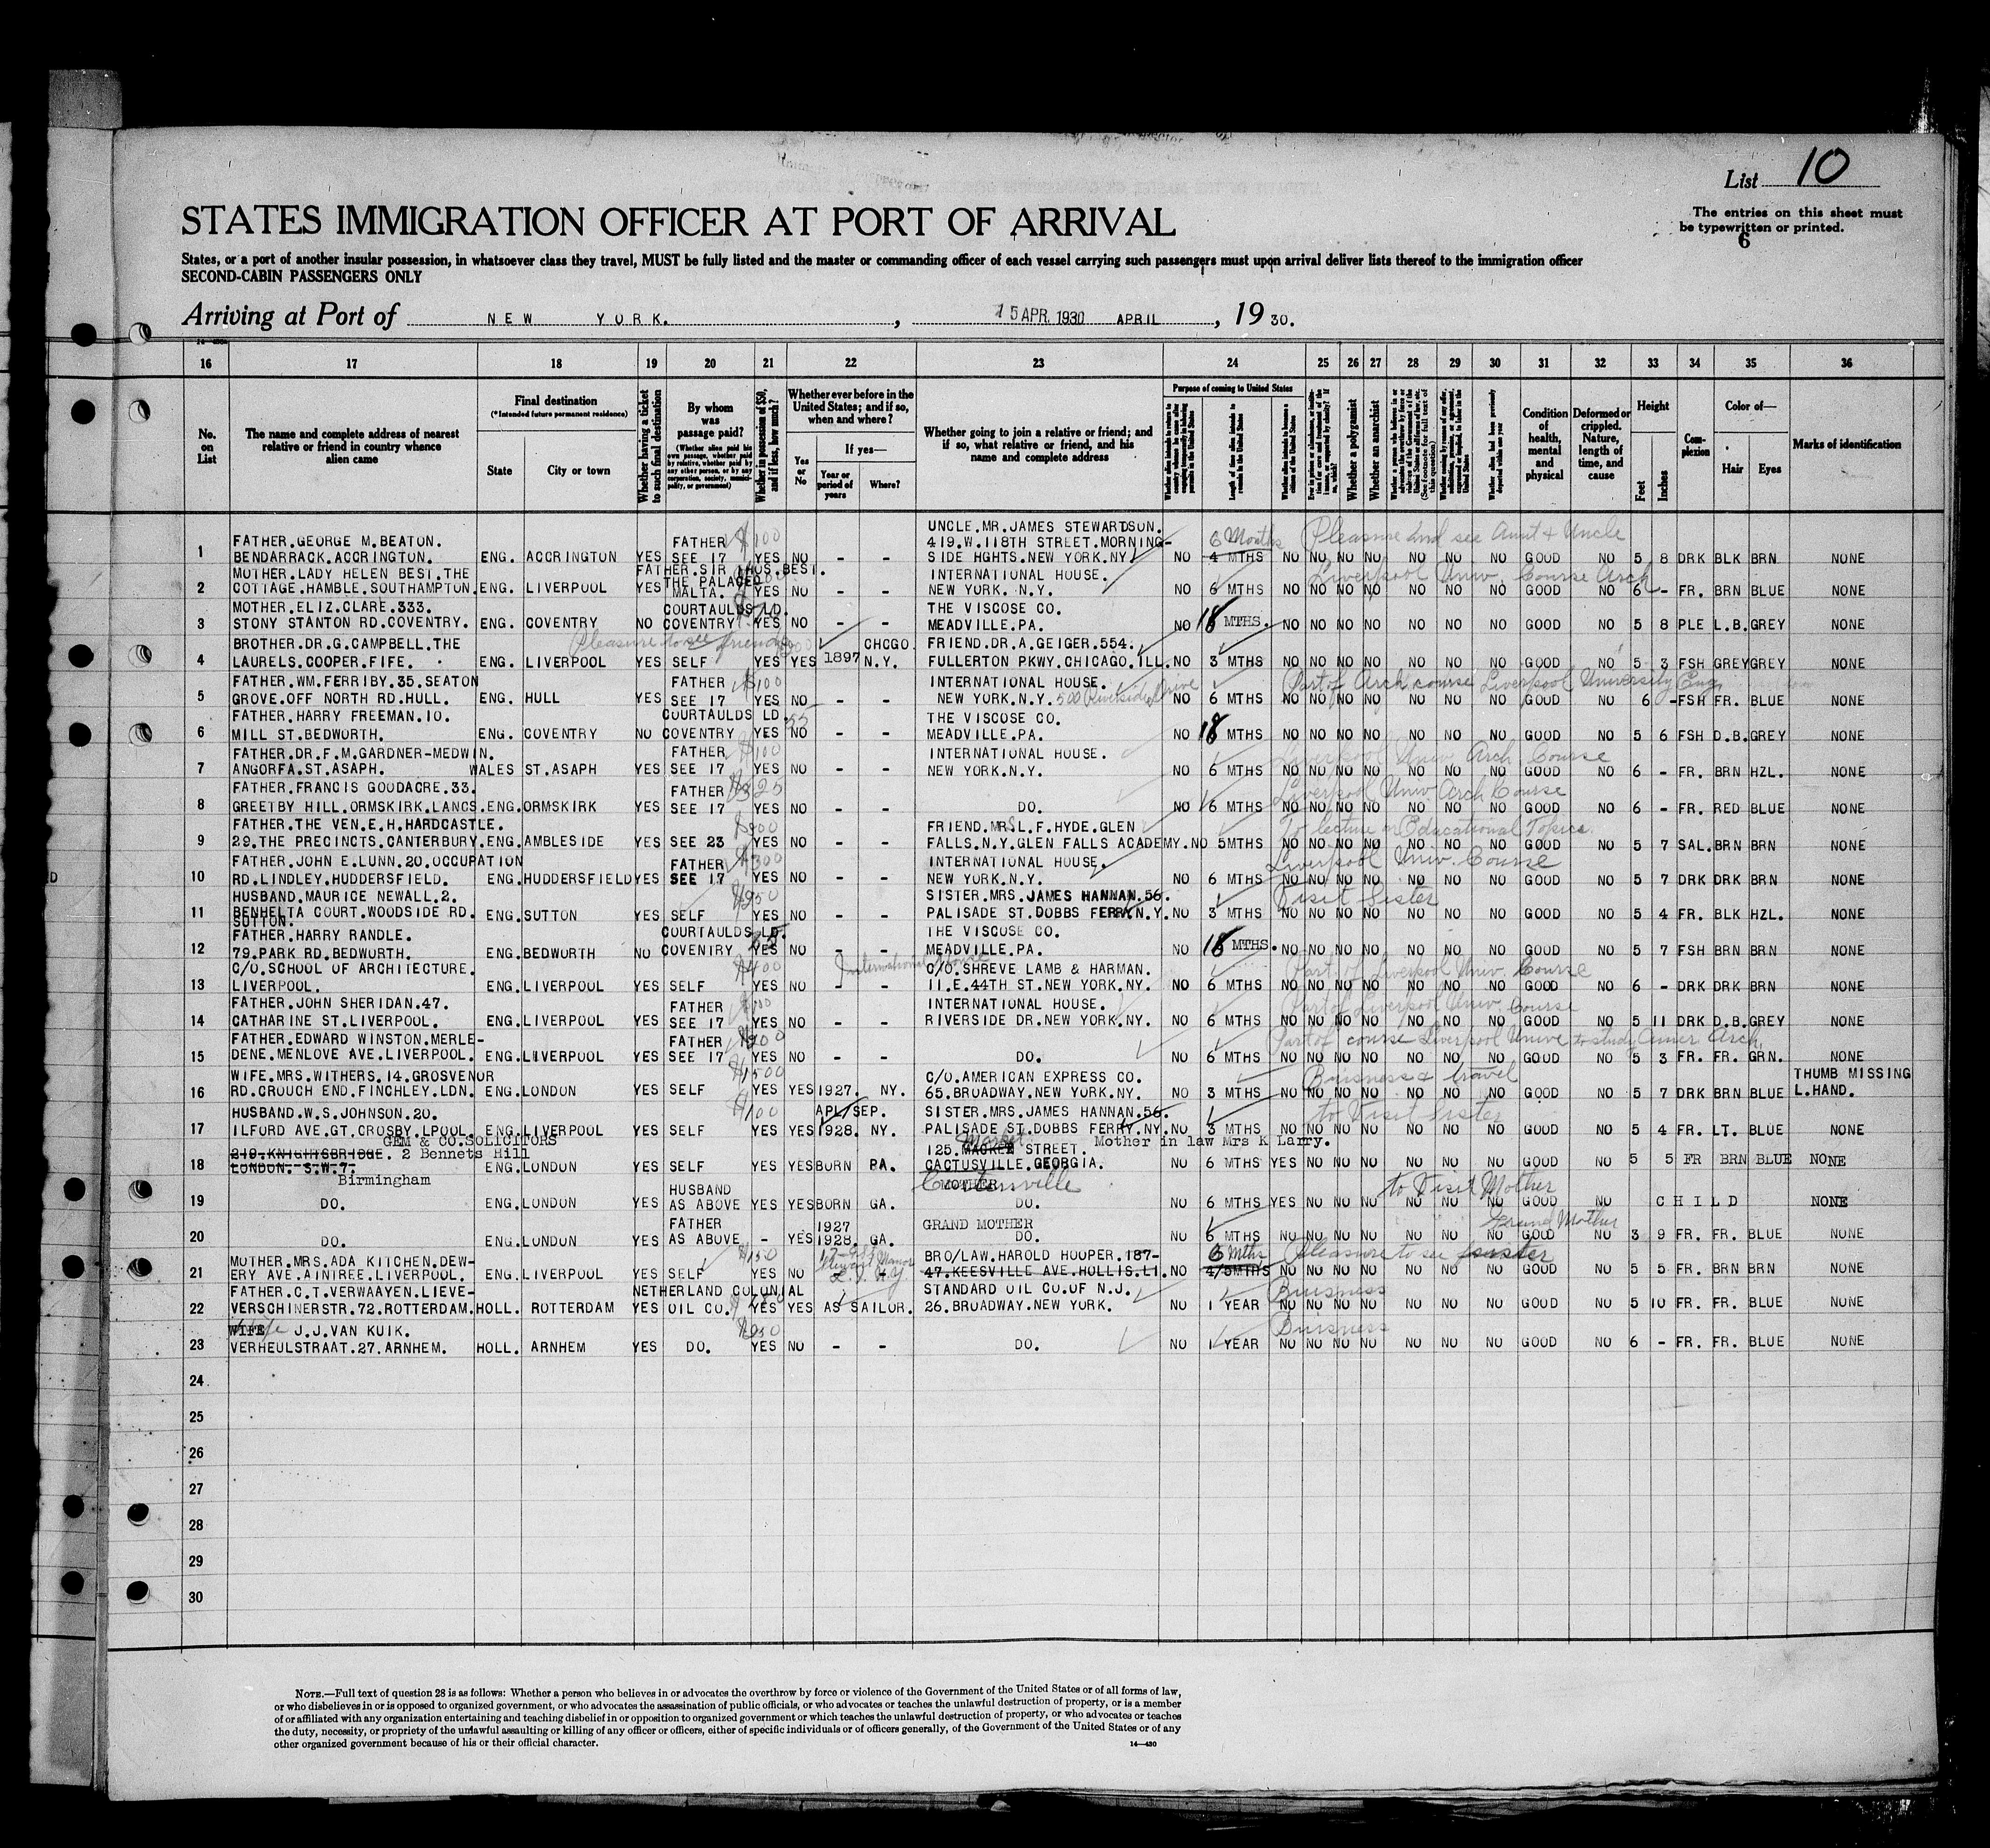 List 10
The entries on this sheet must
be typewritten or printed.
6
STATES IMMIGRATION OFFICER AT PORT OF ARRIVAL
States, or a port of another insular possession, in whatsoever class they travel, MUST be fully listed and the master or commanding officer of each vessel carrying such passengers must upon arrival deliver lists thereof to the immigration officer
SECOND-CABIN PASSENGERS ONLY
Arriving at Port of NEW YORK. , 15 APR 1930 APRIL , 19 30.
16 17 18 19 20 21 22 23 24 25 26 27 28 29 30 31 32 33 34 35 36
No. on List
The name and complete address of nearest relative or friend in country whence alien came
Final destination
(*Intended future permanent residence)
State
City or town
Whether having a ticket to such final destination
By whom was passage paid?
(Whether alien paid his own passage, whether paid by relative, whether paid by any other person, or by any corporation, society, municipality, or government)
Whether in possession of $50, and if less, how much?
Whether ever before in the United States; and if so, when and where?
Yes or No
If yes—
Year or period of years
Where?
Whether going to join a relative or friend; and if so, what relative or friend, and his name and complete address
Purpose of coming to United States
Length of time alien intends to remain in the United States
Whether alien intends to become a citizen of the United States
Whether a polygamist
Whether an anarchist
Condition of health, mental and physical
Deformed or crippled. Nature, length of time, and cause
Height
Feet
Inches
Complexion
Color of—
Hair
Eyes
Marks of identification
1 FATHER.GEORGE M.BEATON. BENDARRACK.ACCRINGTON. ENG. ACCRINGTON YES FATHER SEE 17 $100 YES NO - - UNCLE.MR.JAMES STEWARDSON. 419.W.118TH STREET.MORNING-SIDE HGHTS.NEW YORK.NY. NO 6 Months 4 MTHS NO NO NO NO NO NO NO GOOD NO 5 8 DRK BLK BRN NONE
Pleasure and see Aunt & Uncle
2 MOTHER.LADY HELEN BEST.THE COTTAGE.HAMBLE.SOUTHAMPTON. ENG. LIVERPOOL YES FATHER.SIR THOS.BEST. THE PALACE MALTA. YES NO - - INTERNATIONAL HOUSE. NEW YORK. N.Y. NO 6 MTHS NO NO NO NO NO NO NO GOOD NO 6 - FR. BRN BLUE NONE
Liverpool Univ. Course Arch
3 MOTHER.ELIZ.CLARE.333. STONY STANTON RD.COVENTRY. ENG. COVENTRY NO COURTAULDS LD. COVENTRY YES NO - - THE VISCOSE CO. MEADVILLE.PA. NO 18 MTHS. NO NO NO NO NO NO NO GOOD NO 5 8 PLE L.B. GREY NONE
Pleasure to see friends
4 BROTHER.DR.G.CAMPBELL.THE LAURELS.COOPER.FIFE. ENG. LIVERPOOL YES SELF YES YES 1897 CHCGO. N.Y. FRIEND.DR.A.GEIGER.554. FULLERTON PKWY.CHICAGO.ILL. NO 3 MTHS NO NO NO NO NO NO NO GOOD NO 5 3 FSH GREY GREY NONE
5 FATHER.WM.FERRIBY.35.SEATON GROVE.OFF NORTH RD.HULL. ENG. HULL YES FATHER SEE 17 $100 YES NO - - INTERNATIONAL HOUSE. NEW YORK.N.Y. 500 Riverside Drive NO 6 MTHS NO NO NO NO NO NO NO GOOD NO 6 - FSH FR. BLUE NONE
Part of Arch course Liverpool University Eng
6 FATHER.HARRY FREEMAN.10. MILL ST.BEDWORTH. ENG. COVENTRY NO COURTAULDS LD. COVENTRY 55 YES NO - - THE VISCOSE CO. MEADVILLE.PA. NO 18 MTHS NO NO NO NO NO NO NO GOOD NO 5 6 FSH D.B. GREY NONE
7 FATHER.DR.F.M.GARDNER-MEDWIN. ANGORFA.ST.ASAPH. WALES ST.ASAPH YES FATHER SEE 17 $100 YES NO - - INTERNATIONAL HOUSE. NEW YORK.N.Y. NO 6 MTHS NO NO NO NO NO NO NO GOOD NO 6 - FR. BRN HZL. NONE
Liverpool Univ Arch Course
8 FATHER.FRANCIS GOODACRE.33. GREETBY HILL.ORMSKIRK.LANCS. ENG. ORMSKIRK YES FATHER SEE 17 $325 YES NO - - DO. NO 6 MTHS NO NO NO NO NO NO NO GOOD NO 6 - FR. RED BLUE NONE
Liverpool Univ Arch Course
9 FATHER.THE VEN.E.H.HARDCASTLE. 29.THE PRECINCTS.CANTERBURY. ENG. AMBLESIDE YES SEE 23 YES NO - - FRIEND.MRS L.F.HYDE.GLEN FALLS.N.Y.GLEN FALLS ACADEMY. NO 5MTHS NO NO NO NO NO NO NO GOOD NO 5 7 SAL. BRN BRN NONE
To lecture on Educational Topics.
10 FATHER.JOHN E.LUNN.20.OCCUPATION RD.LINDLEY.HUDDERSFIELD. ENG. HUDDERSFIELD YES FATHER SEE 17 $300 YES NO - - INTERNATIONAL HOUSE. NEW YORK.N.Y. NO 6 MTHS NO NO NO NO NO NO NO GOOD NO 5 7 DRK DRK BRN NONE
Liverpool Univ. Course
11 HUSBAND.MAURICE NEWALL.2. BENHELTA COURT.WOODSIDE RD. SUTTON. ENG. SUTTON YES SELF $250 YES NO - - SISTER.MRS.JAMES HANNAN.56. PALISADE ST.DOBBS FERRY.N.Y. NO 3 MTHS NO NO NO NO NO NO NO GOOD NO 5 4 FR. BLK HZL. NONE
Visit Sister
12 FATHER.HARRY RANDLE. 79.PARK RD.BEDWORTH. ENG. BEDWORTH NO COURTAULDS LD. COVENTRY YES NO - - THE VISCOSE CO. MEADVILLE.PA. NO 18 MTHS. NO NO NO NO NO NO NO GOOD NO 5 7 FSH BRN BRN NONE
13 C/O.SCHOOL OF ARCHITECTURE. LIVERPOOL. ENG. LIVERPOOL YES SELF $400 YES NO - - International House C/O.SHREVE LAMB & HARMAN. 11.E.44TH ST.NEW YORK.NY. NO 6 MTHS NO NO NO NO NO NO NO GOOD NO 6 - DRK DRK BRN NONE
Part of Liverpool Univ. Course
14 FATHER.JOHN SHERIDAN.47. CATHARINE ST.LIVERPOOL. ENG. LIVERPOOL YES FATHER SEE 17 YES NO - - INTERNATIONAL HOUSE. RIVERSIDE DR.NEW YORK.NY. NO 6 MTHS NO NO NO NO NO NO NO GOOD NO 5 11 DRK D.B. GREY NONE
Part of Liverpool Univ. Course
15 FATHER.EDWARD WINSTON.MERLE-DENE.MENLOVE AVE.LIVERPOOL. ENG. LIVERPOOL YES FATHER SEE 17 YES NO - - DO. NO 6 MTHS NO NO NO NO NO NO NO GOOD NO 5 3 FR. FR. GRN. NONE
Part of course Liverpool Unive to study Amer Arch.
16 WIFE.MRS.WITHERS.14.GROSVENOR RD.CROUCH END.FINCHLEY.LDN. ENG. LONDON YES SELF $1500 YES YES 1927. NY. C/O.AMERICAN EXPRESS CO. 65.BROADWAY.NEW YORK.NY. NO 3 MTHS NO NO NO NO NO NO NO GOOD NO 5 7 DRK BRN BLUE THUMB MISSING L.HAND.
Buisness & travel
17 HUSBAND.W.S.JOHNSON.20. ILFORD AVE.GT.CROSBY.LPOOL. ENG. LIVERPOOL YES SELF $100 YES YES APL/SEP. 1928. NY. SISTER.MRS.JAMES HANNAN.56. PALISADE ST.DOBBS FERRY.NY. NO 3 MTHS NO NO NO NO NO NO NO GOOD NO 5 4 FR. LT. BLUE NONE
to Visit Sister
18 GEM & CO.SOLICITORS 219.KNIGHTSBRIDGE. 2 Bennets Hill LONDON. S.W.7. Birmingham ENG. LONDON YES SELF YES YES BORN PA. Market Mother in law Mrs K Larry. 125. STREET. CACTUSVILLE.GEORGIA. NO 6 MTHS YES NO NO NO NO NO NO GOOD NO 5 5 FR BRN BLUE NONE
19 DO. ENG. LONDON YES HUSBAND AS ABOVE YES YES BORN GA. MOTHER Cartersville DO. NO 6 MTHS YES NO NO NO NO NO NO GOOD NO CHILD NONE
to Visit Mother
20 DO. ENG. LONDON YES FATHER AS ABOVE - YES 1927 1928. GA. GRAND MOTHER DO. NO 6 MTHS NO NO NO NO NO NO NO GOOD NO 3 9 FR. FR. BLUE NONE
Grand Mother
21 MOTHER.MRS.ADA KITCHEN.DEW-ERY AVE.AINTREE.LIVERPOOL. ENG. LIVERPOOL YES SELF $150 YES NO Stewart Manor L.I. N.Y. BRO/LAW.HAROLD HOOPER.187-47.KEESVILLE AVE.HOLLIS.LI. NO 6 Mths 4/5MTHS NO NO NO NO NO NO NO GOOD NO 5 5 FR. BRN BRN NONE
Pleasure to see sister
22 FATHER.C.T.VERWAAYEN.LIEVE-VERSCHINERSTR.72.ROTTERDAM. HOLL. ROTTERDAM YES NETHERLAND COLONIAL OIL CO. YES YES AS SAILOR. STANDARD OIL CO.OF N.J. 26.BROADWAY.NEW YORK. NO 1 YEAR NO NO NO NO NO NO NO GOOD NO 5 10 FR. FR. BLUE NONE
Buisness
23 WIFE J.J.VAN KUIK. VERHEULSTRAAT.27.ARNHEM. HOLL. ARNHEM YES DO. $250 YES NO - - DO. NO 1 YEAR NO NO NO NO NO NO NO GOOD NO 6 - FR. FR. BLUE NONE
Buisness
24
25
26
27
28
29
30
NOTE.—Full text of question 28 is as follows: Whether a person who believes in or advocates the overthrow by force or violence of the Government of the United States or of all forms of law,
or who disbelieves in or is opposed to organized government, or who advocates the assassination of public officials, or who advocates or teaches the unlawful destruction of property, or is a member
of or affiliated with any organization entertaining and teaching disbelief in or opposition to organized government or which teaches the unlawful destruction of property, or who advocates or teaches
the duty, necessity, or propriety of the unlawful assaulting or killing of any officer or officers, either of specific individuals or of officers generally, of the Government of the United States or of any
other organized government because of his or their official character.
14—430